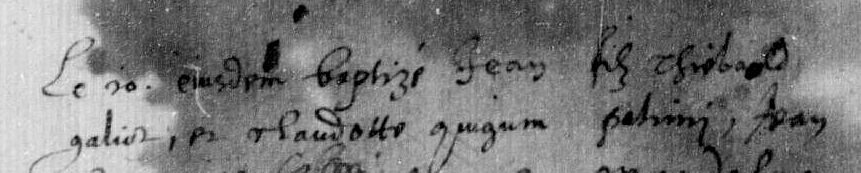 Le 10. eiusdem baptizé Jean filz Thiebald
galiot, et Claudotte quigum patrini, Jean